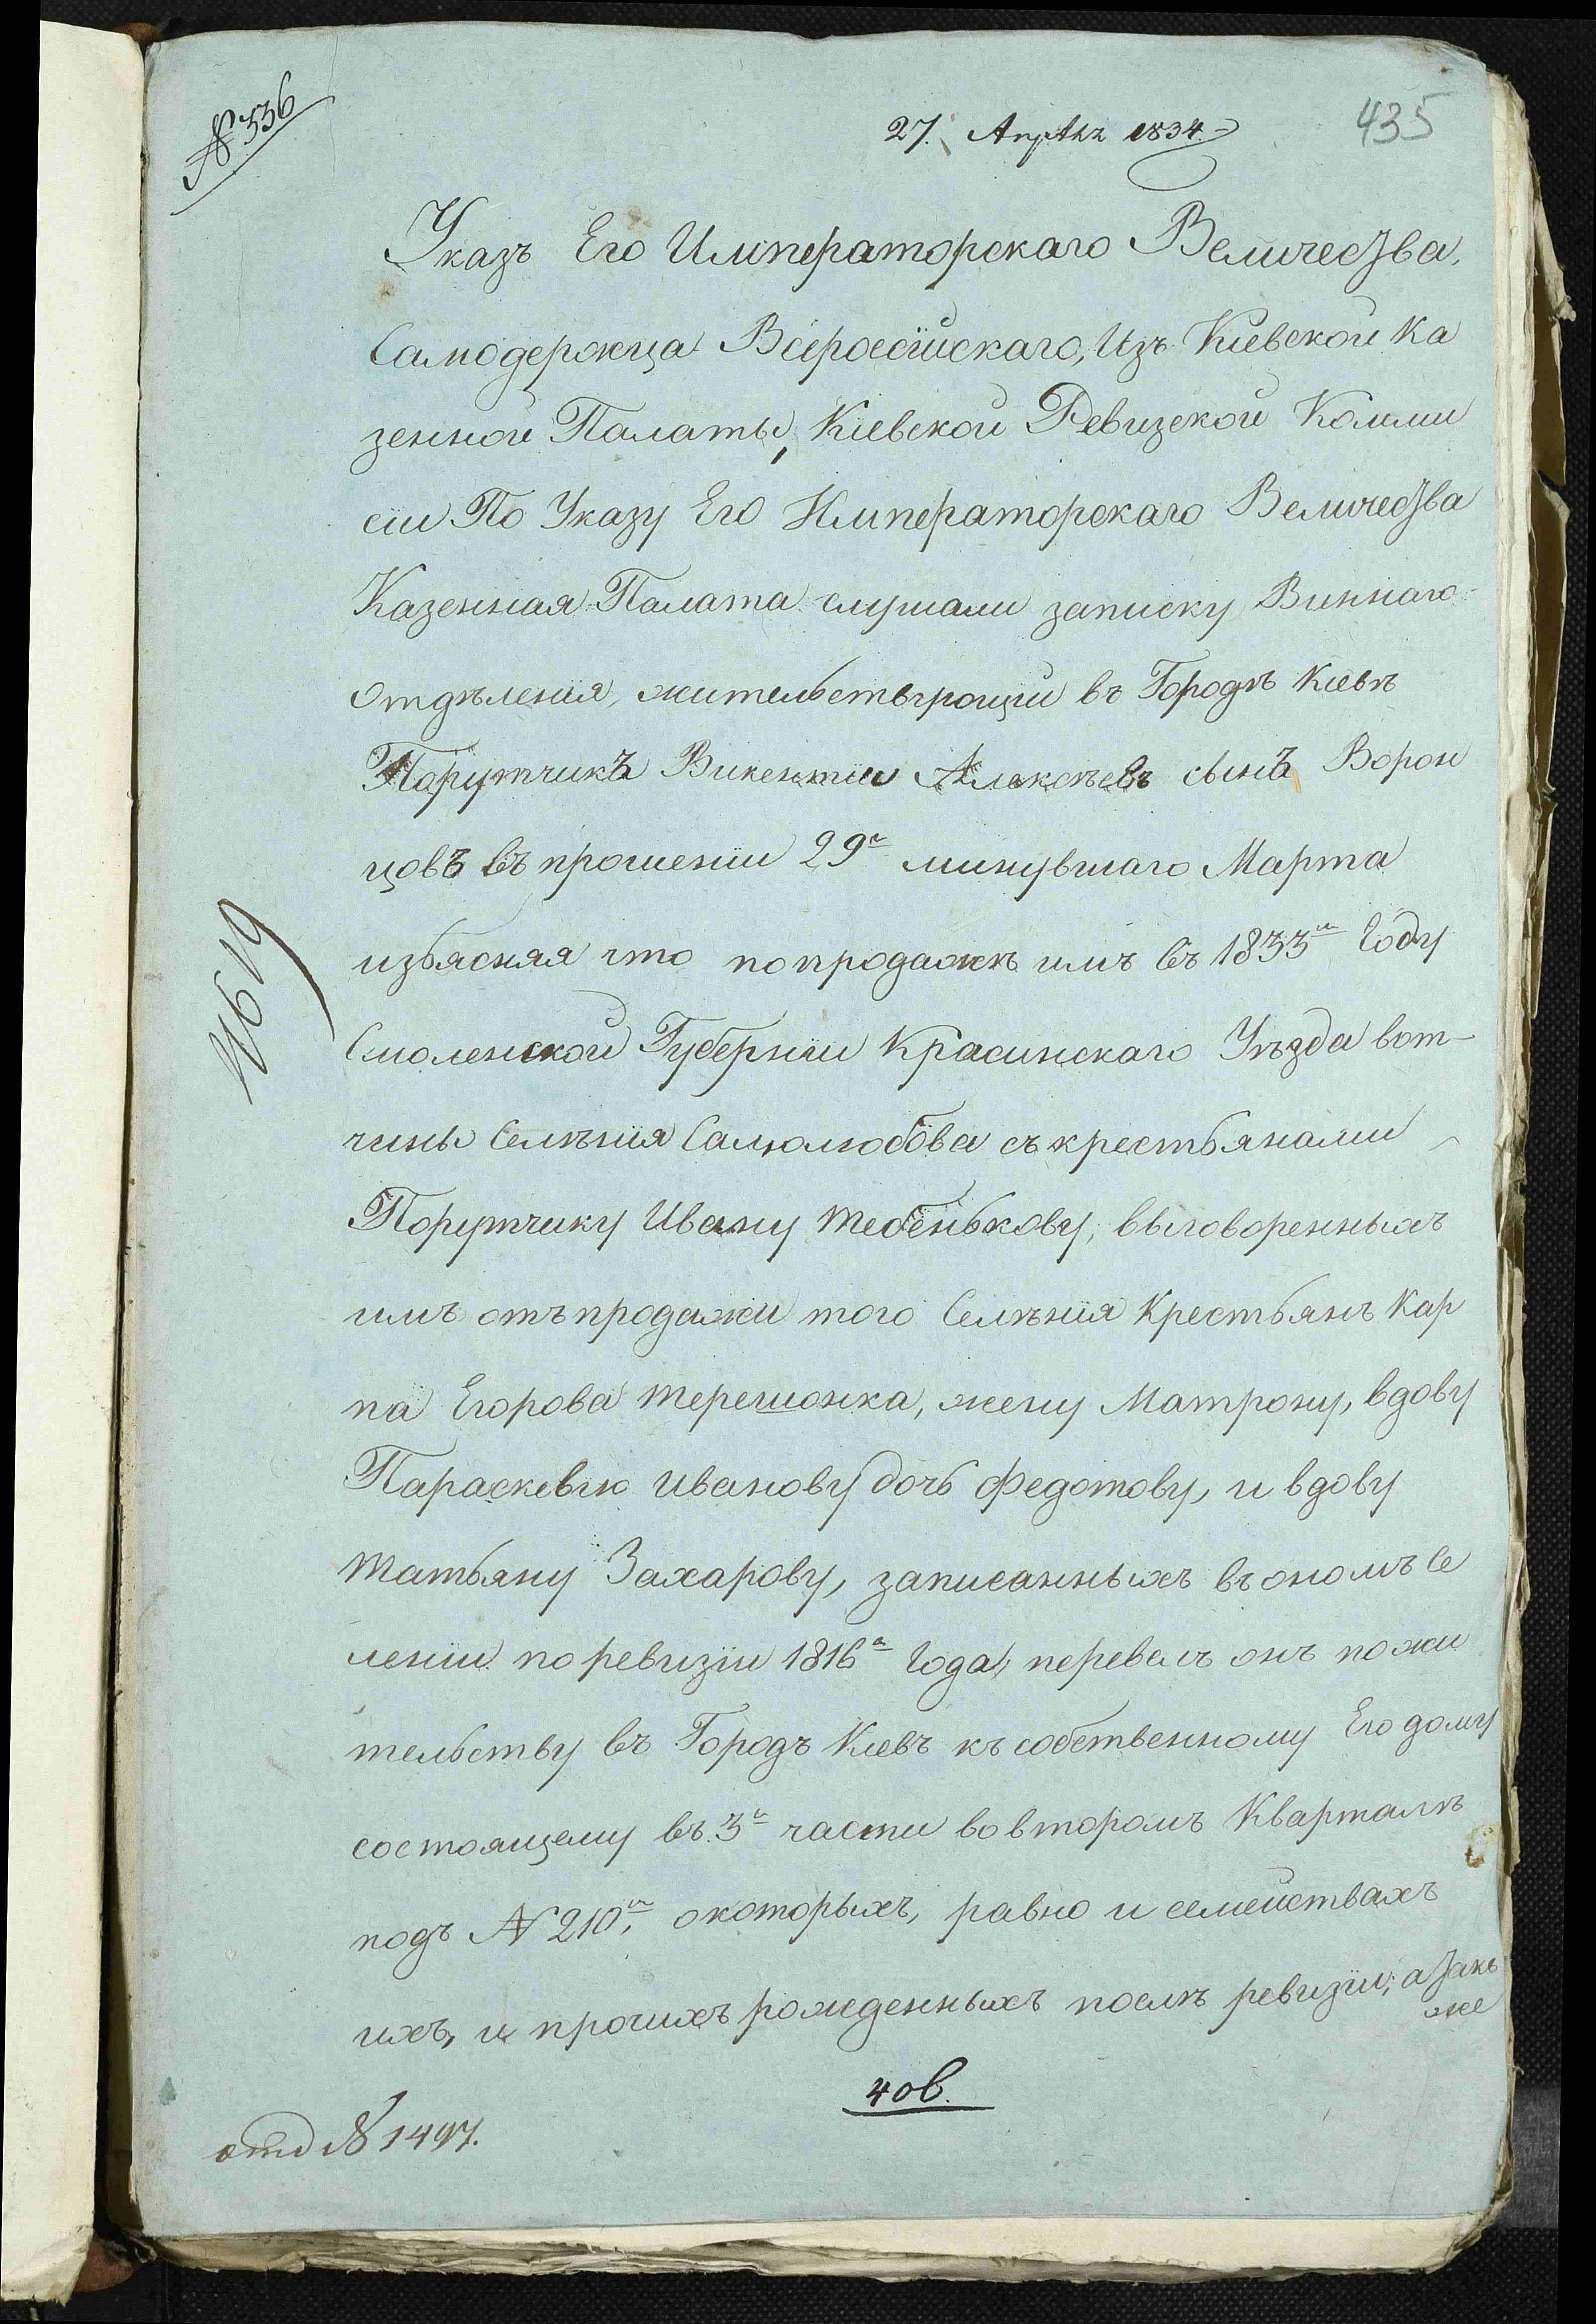 № 536
27. Апрѣля 1834.
435
Указъ Его Императорскаго Величества,
Самодержца Всеросcійскаго, Изъ Кіевской Ка
зенной Палаты, Кіевской Ревизской Комми
сіи По Указу Его Императорскаго Величества
Казенная Палата слушали записку Виннаго
отдѣленія, жительствующій въ Городѣ Кіевѣ
Порутчикъ Викентій Алексѣевъ сынъ Ворон
цовъ въ прошеніи 29го минувшаго Марта
изъясняя что по продажѣ имъ въ 1833м Году
Смоленской Губерніи Красинскаго Уѣзда вот-
чины Селѣнія Самолюбова съ крестьянами
Порутчику Ивану Тебенькову, выговоренныхъ
имъ отъ продажи того Селѣнія Крестьянъ Кар
па Егорова Терешонка, жену Матрону, вдову
Параскевію Иванову дочь Федотову, и вдову
Татьяну Захарову, записанныхъ въ ономъ Се
леніи по ревизіи 1816а Года, перевелъ онъ по жи
тельству въ Городъ Кіевъ къ собственному Его дому
состоящему въ 3й части во второмъ Кварталѣ
подъ № 210м, о которыхъ, равно и семействахъ
ихъ, и прочихъ рожденныхъ послѣ ревизіи, а такъ
же
4619
4 об.
отд № 1497.